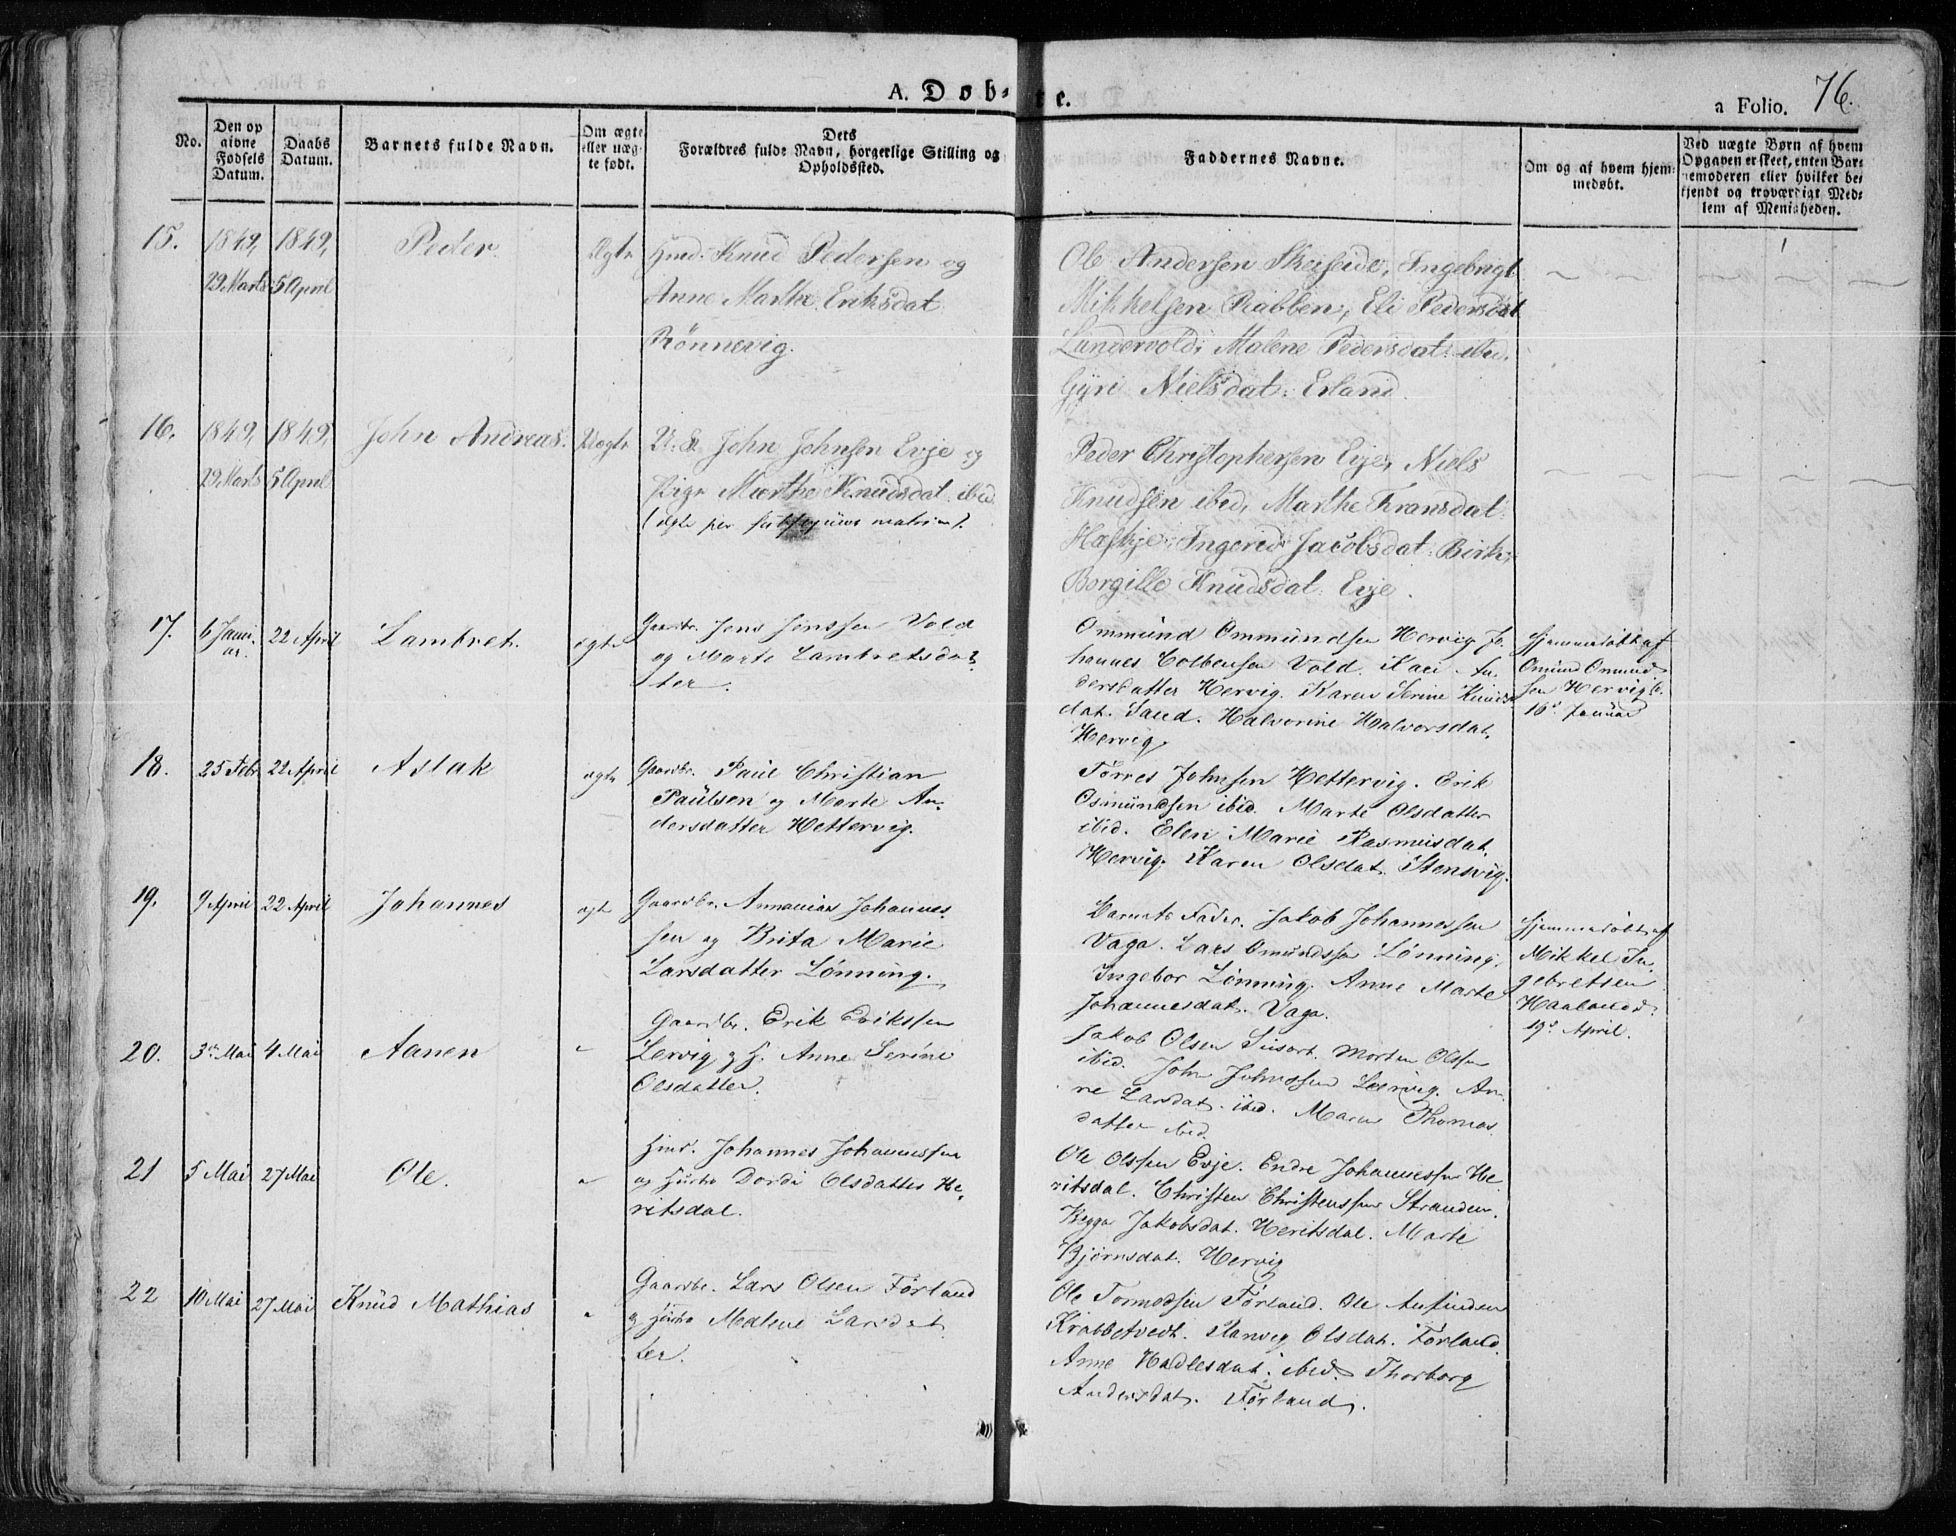 A. Døb- te.
a Folio. 76.
No.
Den op
givne
Fødsels
Datum.
Daabs
Datum.
Barnets fulde Navn.
Om ægte
eller uæg-
te født.
Dets
Forældres fulde Navn, borgerlige Stilling og
Opholdssted.
Faddernes Navne.
Om og af hvem hjem-
medøbt.
Ved uægte Børn af hvem
Opgaven er skeet, enten Bar-
nemoderen eller hvilket be-
kjendt og troværdigt Med-
lem af Menigheden.
15.
1849,
29 Marts
1849,
5 April
Peder.
Ægte
Huusmd. Knud Pedersen og
Anne Marthe Eriksdat.
Rönnevig.
Ole Andersen Skeiseide, Ingebrigt
Mikkelsen Rabben, Eli Pedersdat
Landervold, Malene Pedersdat: ibid,
Gyri Nielsdat: Erland.
16.
1849,
29 Marts
1849,
5 April
John Andreas.
Uægte
John Johnsen Evje og
Pige Marthe Knudsdat. ibid
(ægte per subsequens matrim).
Peder Christophersen Evje, Niels
Knudsen ibid, Marthe
Ingered Jacobsdat: Birk,
Borgille Knudsdat: Evje.
17.
6 Janu-
ar.
22 April
Lambret.
ægte
Gaardbr. Jens Jenssen Vold
og Marte Lambretsdat-
ter.
Ommund Ommundsen Hervig, Jo-
hannes Colbensen Vold. Kari An-
dersdatter Hervig. Karen Serine Knuds-
dat. Sand. Halvorine Halvorsdat.
Hervig.
Hjemmedöbt af
Omund Omund-
sen Hervig d.
16d Januar
18.
25 Febr
22 April
Aslak
ægte
Gaardbr. Paul Christian
Paulsen og Marte An-
dersdatter Hettervig.
Törres Johnsen Hettervig. Erik
Osmundsen ibid. Marte Olsdatter
ibid. Elen Marie Rasmusdat.
Hervig. Karen Olsdat. Stensvig.
19.
9 April
22 April
Johannes
ægte
Gaardbr. Annanias Johannes-
sen og Brita Marie
Larsdatter Lönning.
Barnets Fader. Jakob Johannessen
Vaga. Lars Omundssen Lönning.
Ingebor Lönning. Anne Marte
Johannesdat. Vaga.
Hjemmedöbt af
Mikkel In-
gebretsen
Haaland d.
19d April.
20.
3d Mai
4 Mai
Aanen
"
Gaardbr. Erik Erikssen
Lervig og H. Anne Serine
Olsdatter.
Jakob Olsen Morten Olsen
ibid. John Johnssen Lervig. An-
ne Larsdat. ibid. Maren Thomas-
datter ibid.
21
5 Mai
27 Mai
Ole.
"
Huusmd. Johannes Johannessen
og Hustro Dordi Olsdatter He-
ritsdal.
Ole Olssen Evje. Endre Johannessen He-
ritsdal. Christen Christenssen Stranden.
Jakobsdat. Heritsdal. Marte
Bjørnsdat. Hervig
22
10 Mai
27 Mai
Knud Mathias
"
Gaardbr. Lars Olsen Førland
og Hustro Malene Larsdat-
ter.
Ole Tormodsen Førland. Ole
Krabbetvedt. Olsdat. Førland.
Anne Hadlesdat. ibid. Thorborg
Andersdat. Førland.